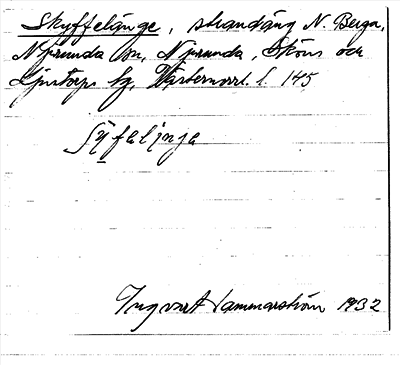 Skyffelänge, strandäng N. Berga,
Njurunda sn, Njurunda, Sköns och
Ljustorps tg, Västernorrl. l. 145
Syfelinga
Ingvart Hammarström 1932